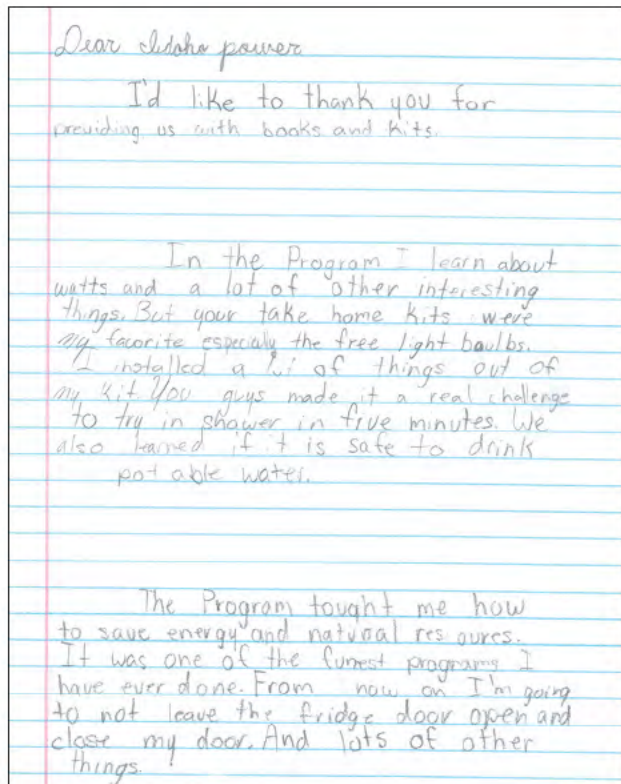 Dear Idaho power
I'd like to thank you for
previding us with books and kits.
In the Program I learn about
watts and a lot of other interesting
things. But your take home kits were
my favorite especially the free light boulbs.
I installed a of things out of
my kit you guys made it a real challenge
to try in shower in five minutes. We
also learned if it is safe to drink
pot able water.
The Program tought me how
to save energy and natural res oures.
It was one of the funest programs I
have ever done. From now on I'm going
to not leave the fridge door open and
close my door. And lots of other
things.